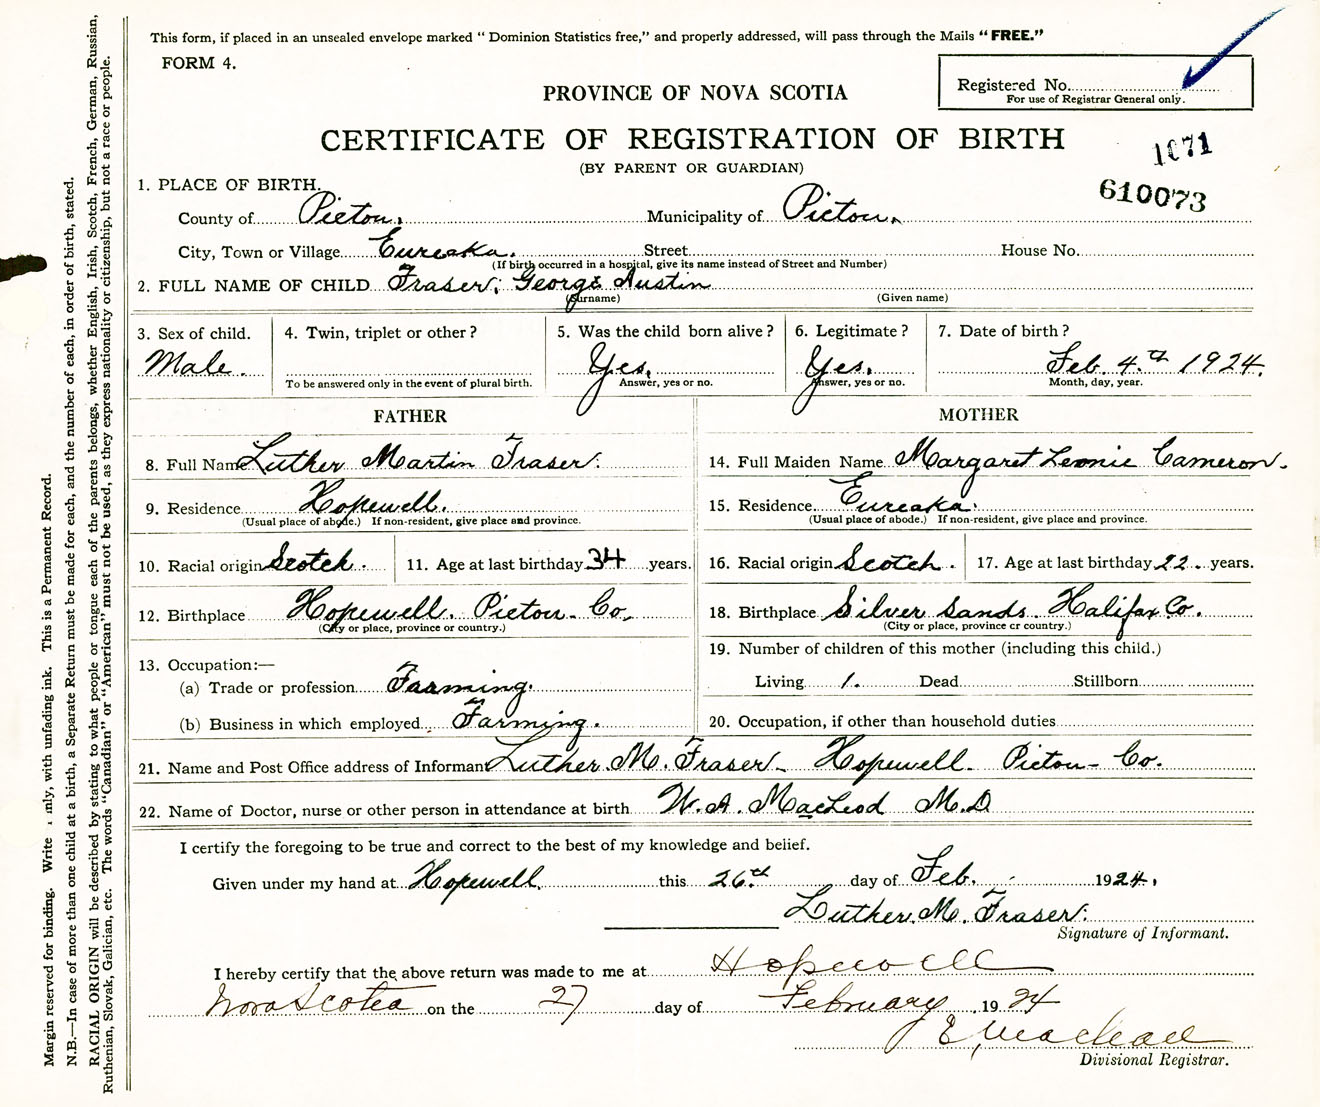 This form, if placed in an unsealed envelope marked " Dominion Statistics free," and properly addressed, will pass through the Mails "FREE."
FORM 4.
Registered No.
For use of Registrar General only.
PROVINCE OF NOVA SCOTIA
CERTIFICATE OF REGISTRATION OF BIRTH
1071
(BY PARENT OR GUARDIAN)
610073
1. PLACE OF BIRTH.
County of Pictou. Municipality of Pictou.
City, Town or Village Eureaka. Street House No.
(If birth occurred in a hospital, give its name instead of Street and Number)
2. FULL NAME OF CHILD Fraser, George Austin
(Surname) (Given name)
3. Sex of child. 4. Twin, triplet or other? 5. Was the child born alive? 6. Legitimate? 7. Date of birth?
Male. Yes. Yes. Feb. 4th 1924.
To be answered only in the event of plural birth. Answer, yes or no. Answer, yes or no. Month, day, year.
FATHER MOTHER
8. Full Name Luther Martin Fraser. 14. Full Maiden Name Margaret Leonie Cameron.
9. Residence Hopewell. 15. Residence Eureaka.
(Usual place of abode.) If non-resident, give place and province. (Usual place of abode.) If non-resident, give place and province.
10. Racial origin Scotch. 11. Age at last birthday 34 years. 16. Racial origin Scotch. 17. Age at last birthday 22 years.
12. Birthplace Hopewell. Pictou Co. 18. Birthplace Silver Sands. Halifax Co.
(City or place, province or country.) (City or place, province or country.)
19. Number of children of this mother (including this child.)
13. Occupation:—
(a) Trade or profession Farming. Living 1. Dead Stillborn
(b) Business in which employed Farming. 20. Occupation, if other than household duties
21. Name and Post Office address of Informant Luther. M. Fraser Hopewell. Pictou Co.
22. Name of Doctor, nurse or other person in attendance at birth W. A. MacLeod M.D
I certify the foregoing to be true and correct to the best of my knowledge and belief.
Given under my hand at Hopewell this 26th day of Feb. 1924.
Luther. M. Fraser.
Signature of Informant.
I hereby certify that the above return was made to me at Hopewell
Nova Scotia on the 27 day of February 1924
Divisional Registrar.
Margin reserved for binding. Write only, with unfading ink. This is a Permanent Record.
N.B.—In case of more than one child at a birth, a Separate Return must be made for each, and the number of each, in order of birth, stated.
RACIAL ORIGIN will be described by stating to what people or tongue each of the parents belongs, whether English, Irish, Scotch, French, German, Russian,
Ruthenian, Slovak, Galician, etc. The words "Canadian" or "American" must not be used, as they express nationality or citizenship, but not a race or people.